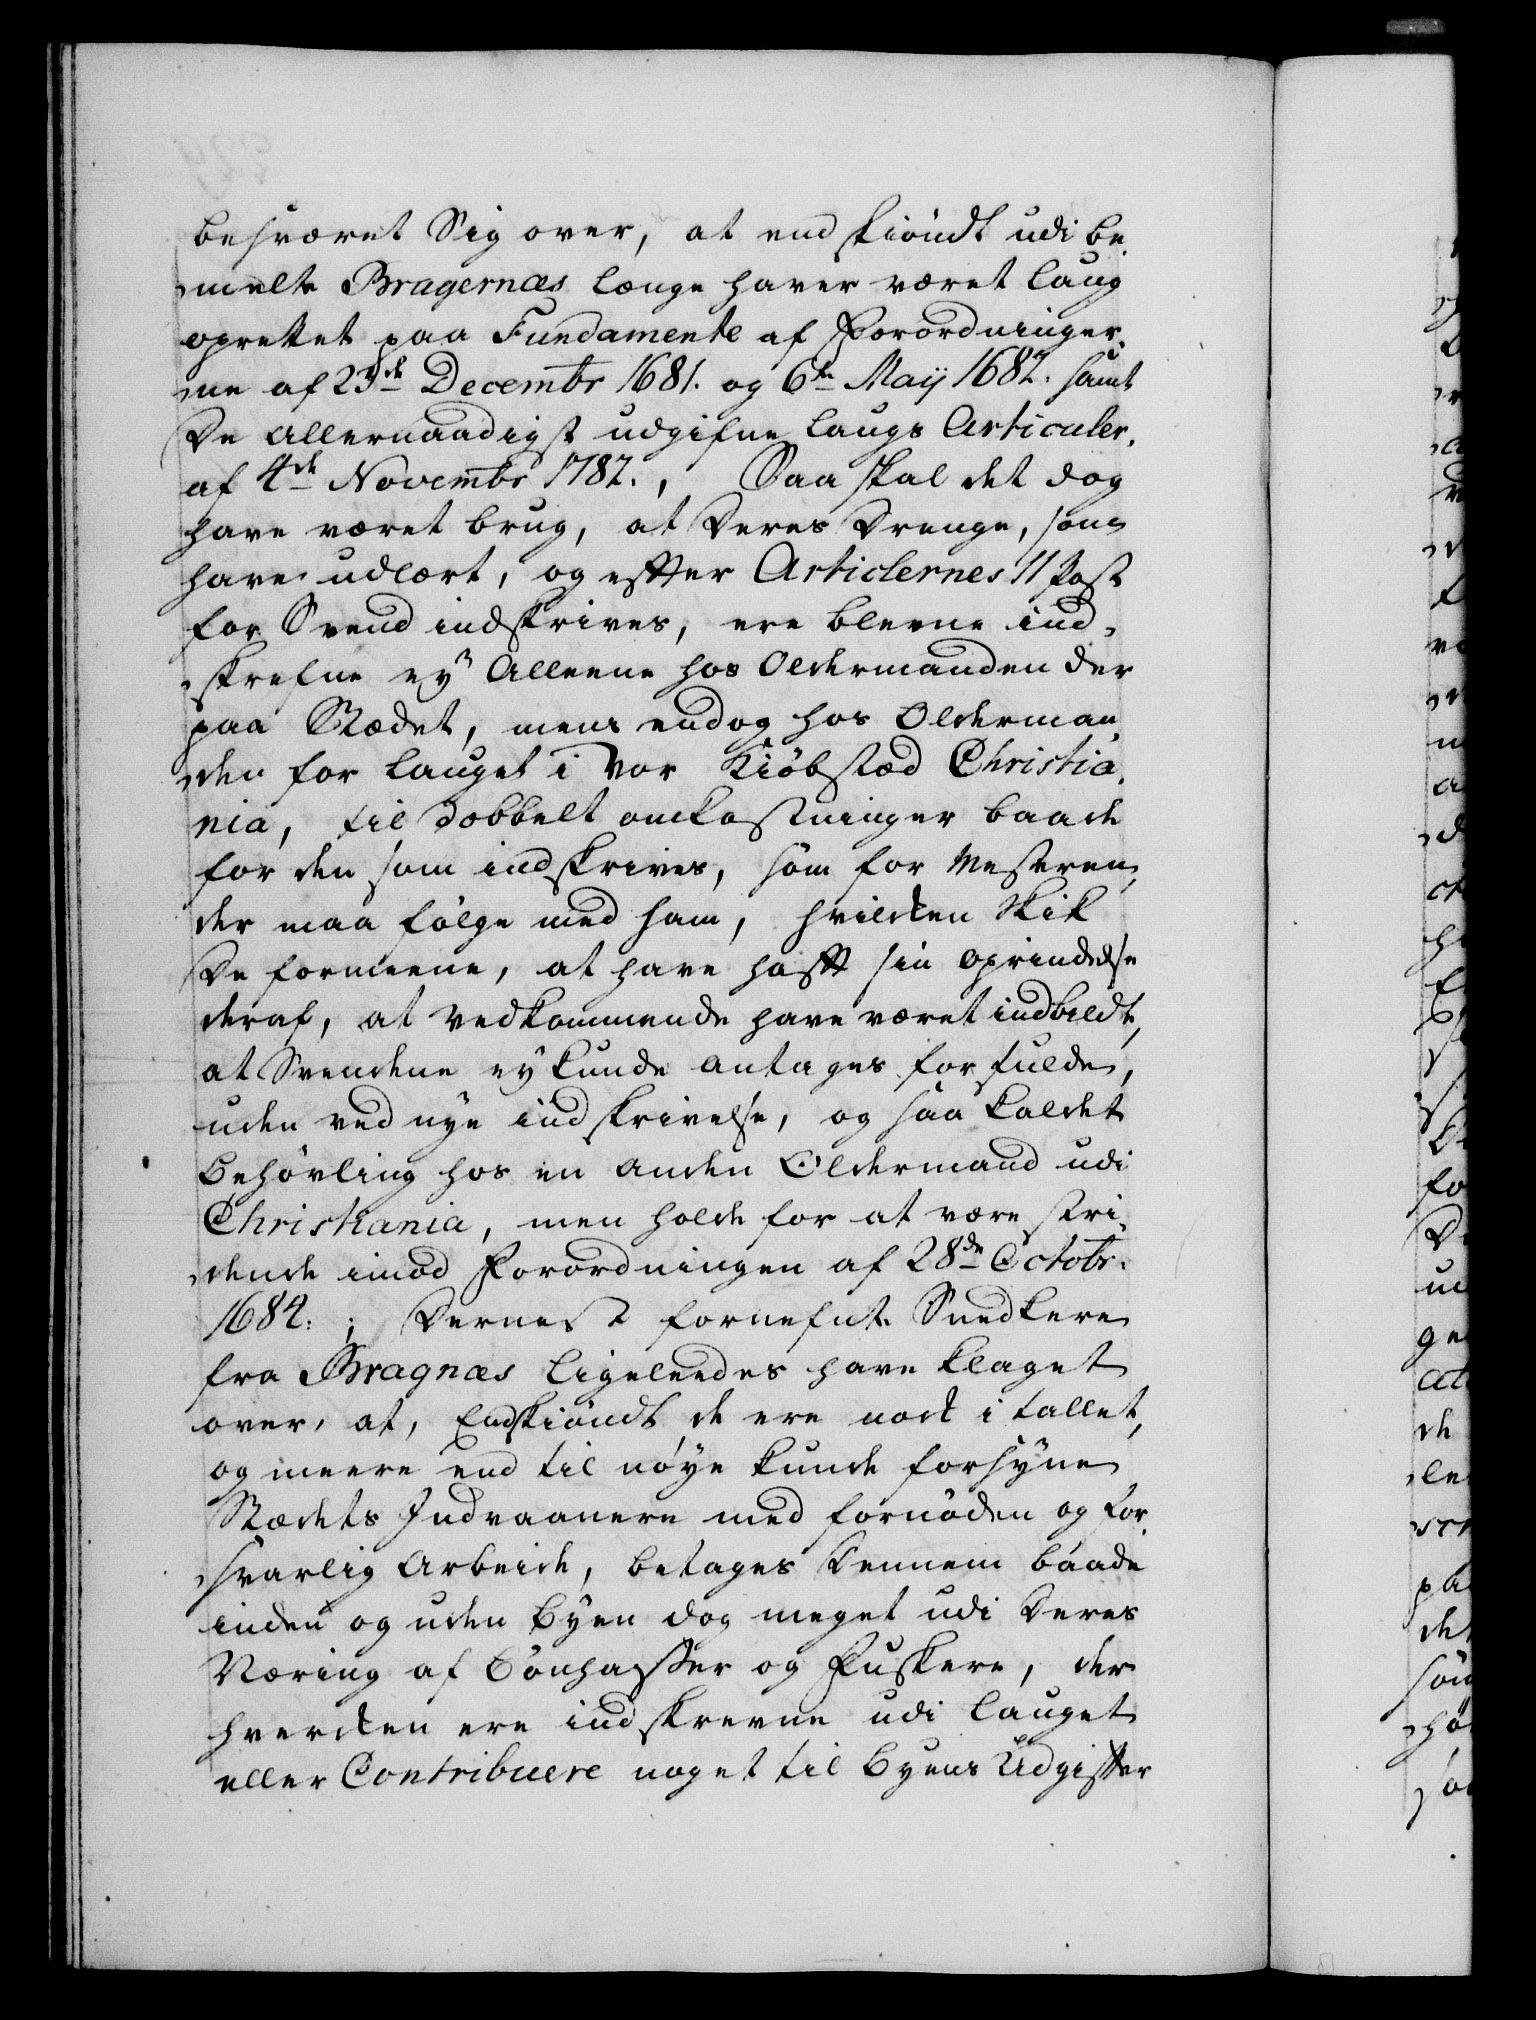 besværet Sig over, at end skiöndt udi be,,
,,melte Bragernæs længe haver været laug
oprettet paa Fundamente af Forordninger,,
,,ne af 23de Decembr 1681. og 6te Maij 1682. samt
De allernaadigst udgifne Laugs Articuler,
af 4de Novembr 1782., Saa skal det dog
have været brug, at Deres Drenge, som
have udlært, og effter Articlernes 11 Post
for Svend indskrives, ere blevne ind,,
,,skrefne ey Alleene hos Oldermanden der
paa Stædet, mens endog hos Olderman,,
,,den for Lauget i Vor Kiöbstæd Christia,,
nia, til dobbelt omkostninger baade
for den som indskrives, som for Mesteren,
der maa fölge med ham, hvilcken Skik
De formeene, at have hafft sin oprindelse
deraf, at Vedkommende have været indbildt,
at Svendene ey kunde antages for fulde,
uden ved nye indskrivelse, og saa kaldet
Behövling hos en anden Oldermand udi
Christiania, men holde for at være stri,,
,,dende imod Forordningen af 28de Octobr.
1684.; Dernest fornefnte Snedkere
fra Bragnæs ligeleedes have klaget
over, at, Endskiöndt de ere nock i tallet,
og meere end til nöye kunde forsyne
Stædets Indvaanere med fornöden og for,,
,,svarlig Arbeide, betages Dennem baade
inden og uden Byen dog meget udi Deres
Næring af Bönhasser og Fuskere, der
hvercken ere indskrevne udi Lauget
eller Contribuere noget til Byens Udgiffter